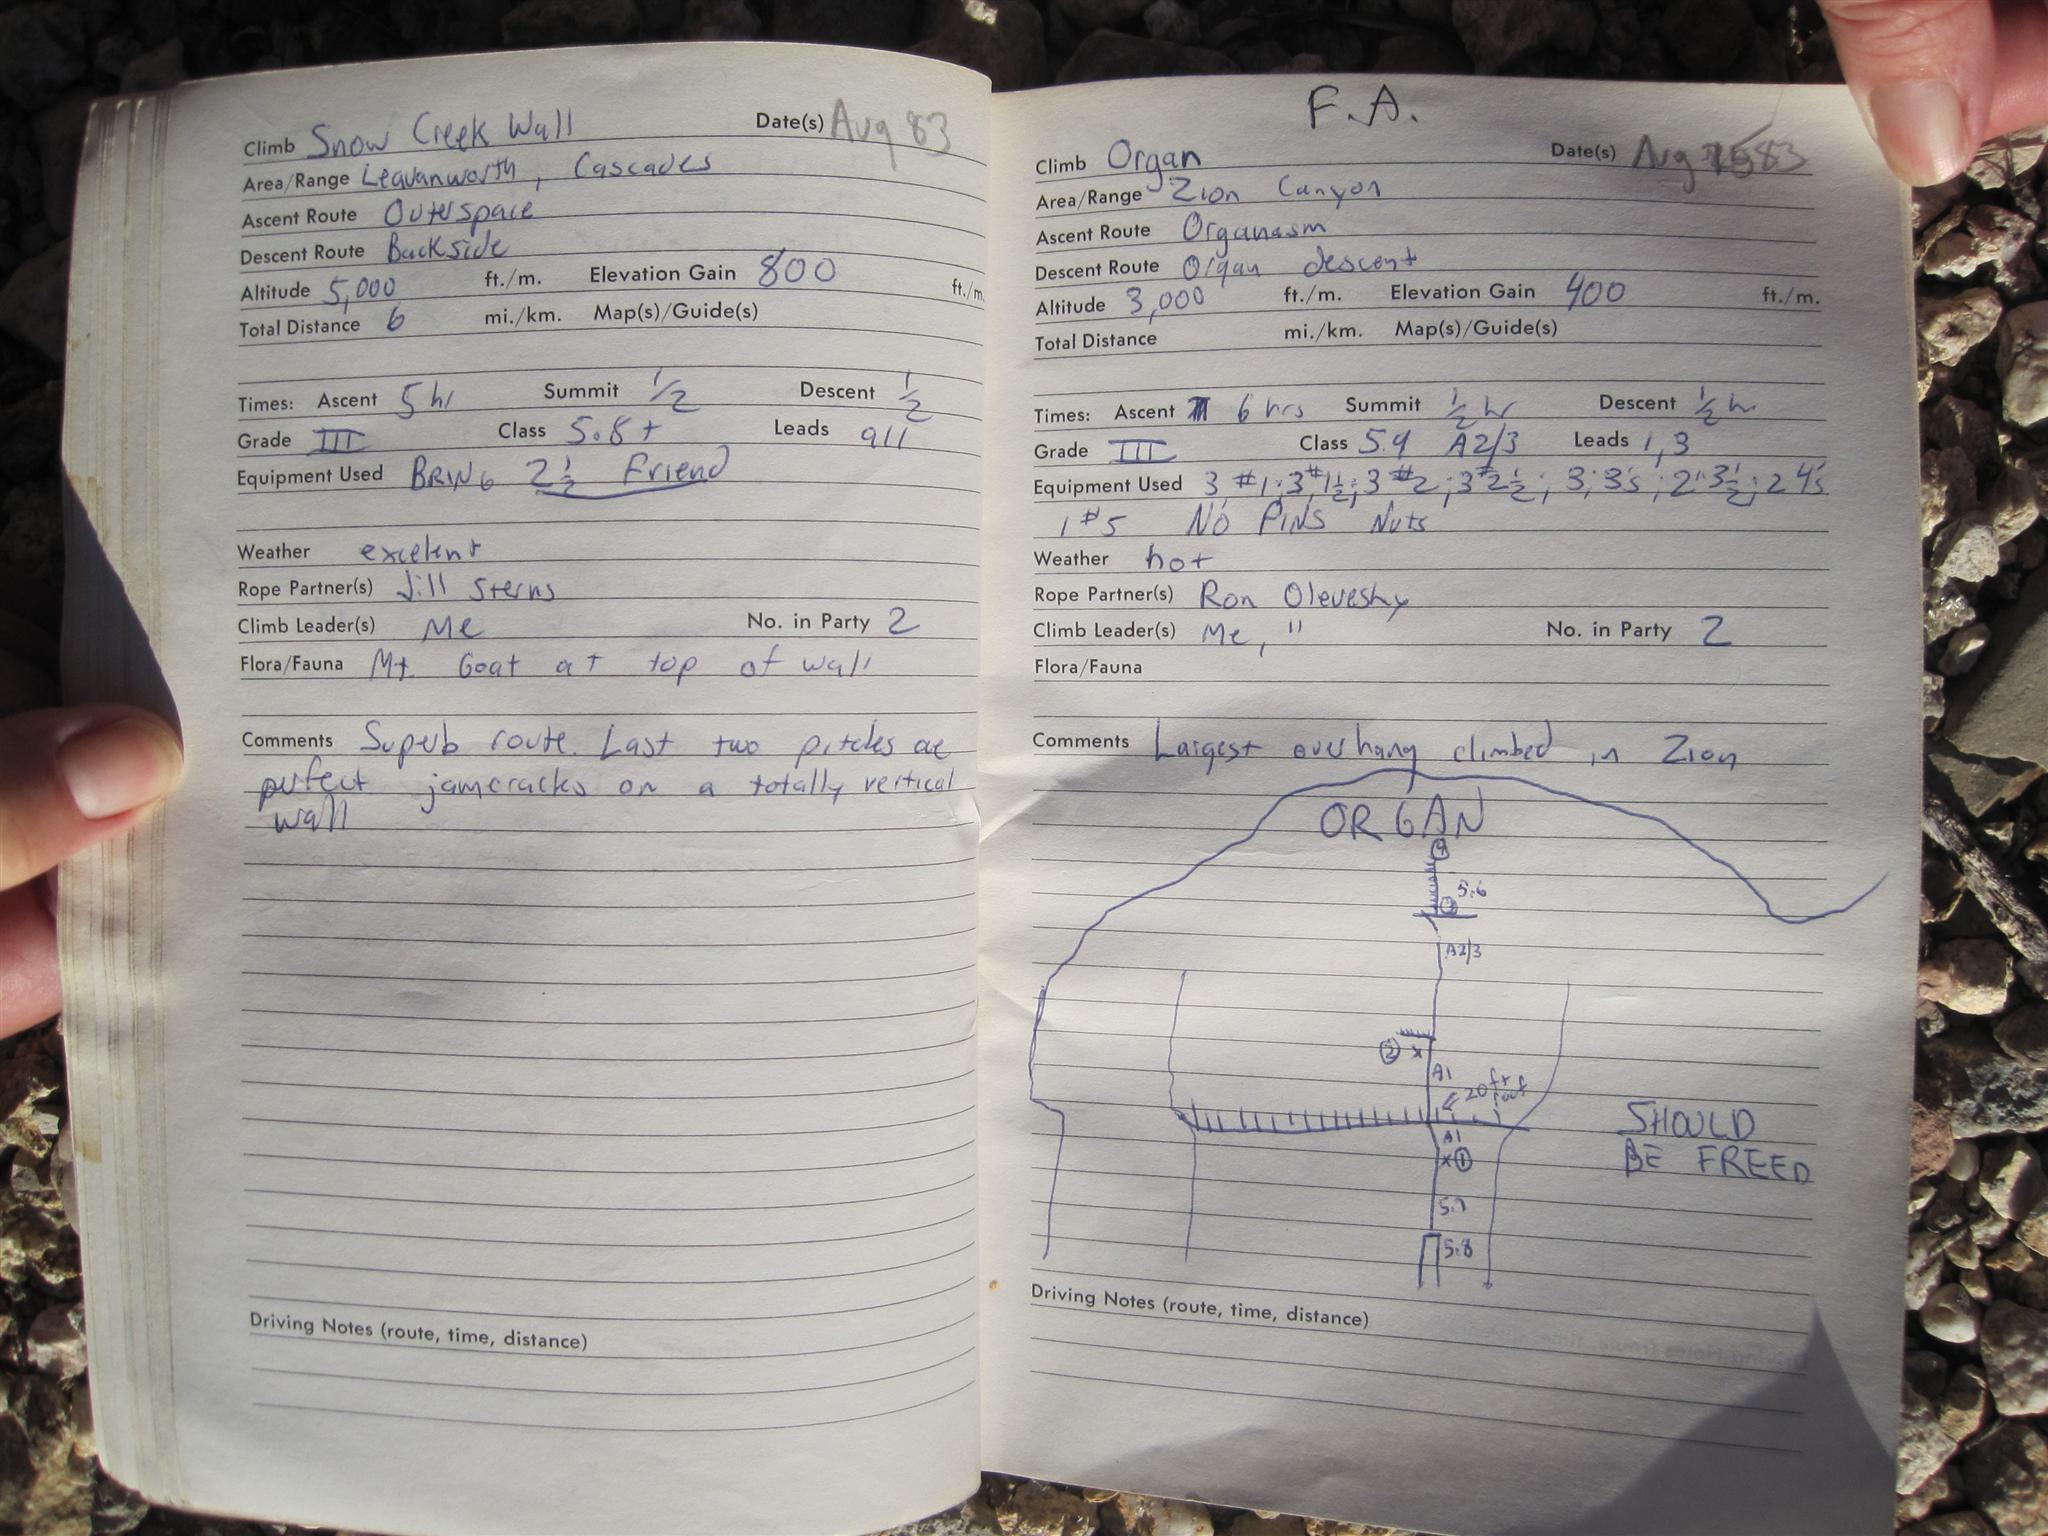 Climb Snow Creek Wall Date(s) Aug 83
Area/Range Leavanworth, Cascades
Ascent Route Outerspace
Descent Route Backside
Altitude 5,000 ft./m. Elevation Gain 800 ft./m.
Total Distance 6 mi./km. Map(s)/Guide(s)
Times: Ascent 5 hr Summit 1/2 Descent 1/2
Grade III Class 5.8+ Leads all
Equipment Used BRING 2 1/2 Friend
Weather excelent
Rope Partner(s) Jill Sterns
Climb Leader(s) Me No. in Party 2
Flora/Fauna Mt. Goat at top of wall
Comments Superb route. Last two pitches are
perfect jamcracks on a totally vertical
wall
Driving Notes (route, time, distance)
F.A.
Climb Organ Date(s) Aug 83
Area/Range Zion Canyon
Ascent Route Organasm
Descent Route Organ descent
Altitude 3,000 ft./m. Elevation Gain 400 ft./m.
Total Distance mi./km. Map(s)/Guide(s)
Times: Ascent 6 hrs Summit 1/2 hr Descent 1/2 hr
Grade III Class 5.9 A2/3 Leads 1,3
Equipment Used 3 #1; 3 #1 1/2; 3 #2; 3 #2 1/2; 3, 3's; 2 3 1/2; 2 4's
1 #5 NO PINS Nuts
Weather hot
Rope Partner(s) Ron Olevesky
Climb Leader(s) Me, " No. in Party 2
Flora/Fauna
Comments Largest overhang climbed in Zion
ORGAN
4
5.6
3
A2/3
2 x
A1
20 ft roof
A1
x 1
SHOULD
BE FREED
5.9
5.8
Driving Notes (route, time, distance)